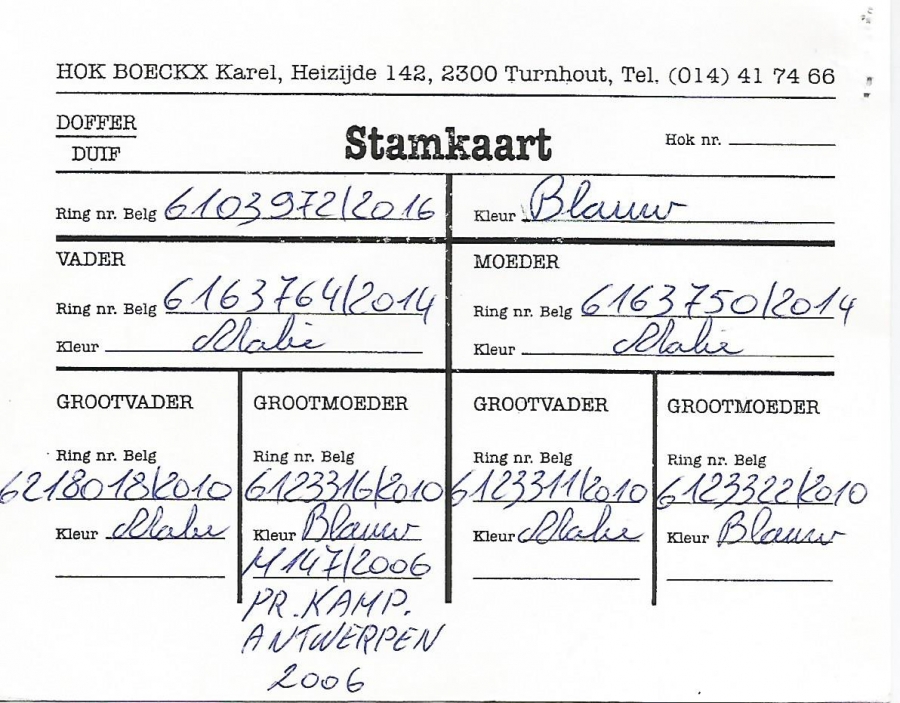 HOK BOECKX Karel, Heizijde 142, 2300 Turnhout, Tel. (014) 41 74 66
DOFFER
DUIF
Stamkaart
Hok nr.
Ring nr. Belg 6103972/2016
Kleur Blauw
VADER
Ring nr. Belg 6163764/2014
Kleur
MOEDER
Ring nr. Belg 6163750/2014
Kleur
GROOTVADER
Ring nr. Belg
6218018/2010
Kleur
GROOTMOEDER
Ring nr. Belg
6123316/2010
Kleur Blauw
M147/2006
PR. KAMP.
ANTWERPEN
2006
GROOTVADER
Ring nr. Belg
6123311/2010
Kleur
GROOTMOEDER
Ring nr. Belg
6123322/2010
Kleur Blauw